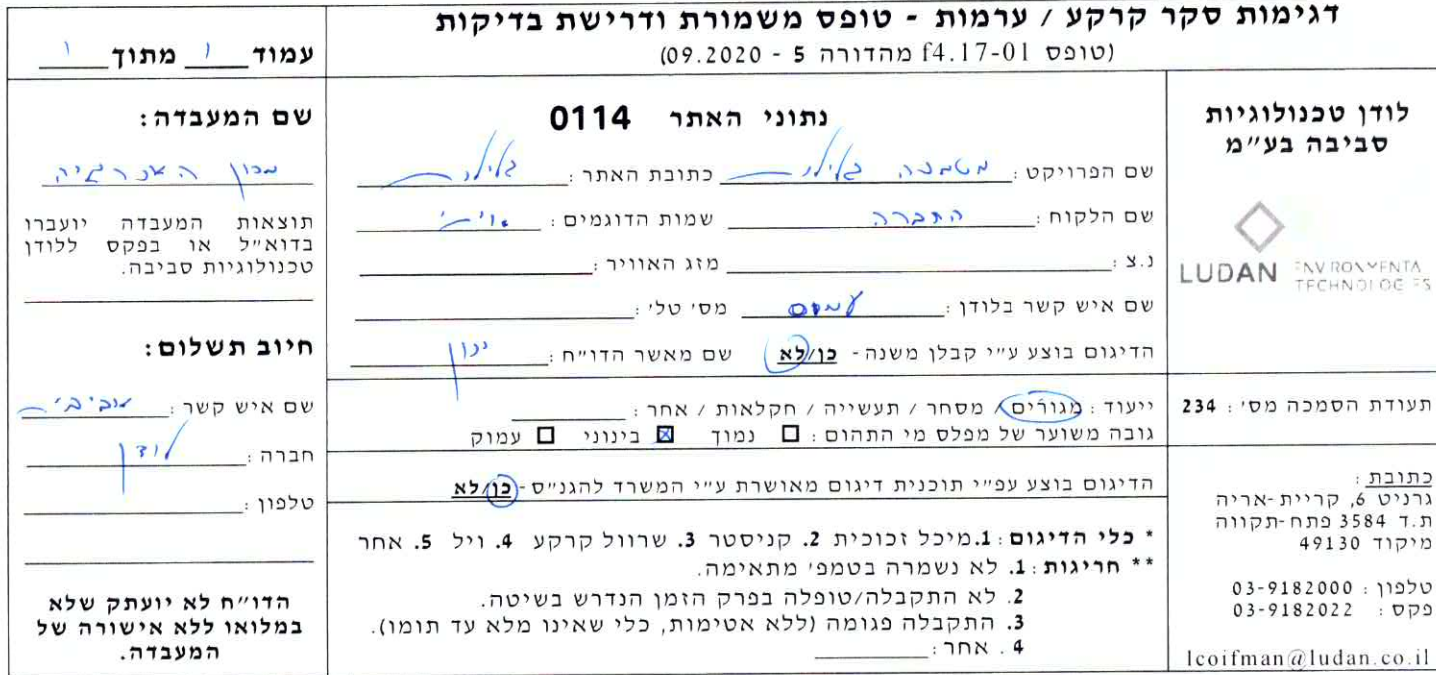 דגימות סקר קרקע / ערמות - טופס משמורת ודרישת בדיקות
(טופס f4.17-01 מהדורה 5 - 09.2020)
עמוד 1 מתוך 1
לודן טכנולוגיות
סביבה בע״מ
LUDAN ENVIRONMENTA
TECHNOLOGIES
תעודת הסמכה מס׳ : 234
כתובת :
גרניט 6, קריית-אריה
ת.ד 3584 פתח-תקווה
מיקוד 49130
טלפון : 03-9182000
פקס : 03-9182022
lcoifman@ludan.co.il
נתוני האתר 0114
שם הפרויקט : גלילות כתובת האתר : גלילות
שם הלקוח : החברה שמות הדוגמים :
נ.צ : מזג האוויר :
שם איש קשר בלודן : מס׳ טל׳ :
הדיגום בוצע ע״י קבלן משנה - כן/לא שם מאשר הדו״ח : ינון
ייעוד : מגורים / מסחר / תעשייה / חקלאות / אחר :
גובה משוער של מפלס מי התהום : ☐ נמוך ☒ בינוני ☐ עמוק
הדיגום בוצע עפ״י תוכנית דיגום מאושרת ע״י המשרד להגנ״ס - כן/לא
* כלי הדיגום : 1.מיכל זכוכית 2. קניסטר 3. שרוול קרקע 4. ויל 5. אחר
** חריגות : 1. לא נשמרה בטמפ׳ מתאימה.
2. לא התקבלה/טופלה בפרק הזמן הנדרש בשיטה.
3. התקבלה פגומה (ללא אטימות, כלי שאינו מלא עד תומו).
4 . אחר :
שם המעבדה :
מכון האנרגיה
תוצאות המעבדה יועברו
בדוא״ל או בפקס ללודן
טכנולוגיות סביבה.
חיוב תשלום :
שם איש קשר :
חברה : לודן
טלפון :
הדו״ח לא יועתק שלא
במלואו ללא אישורה של
המעבדה.